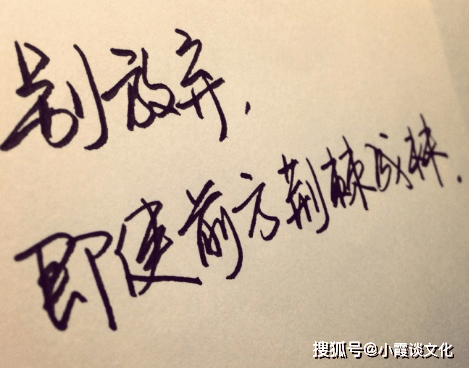 别放弃.
即使前方荆棘成林.
搜狐号@小霞谈文化